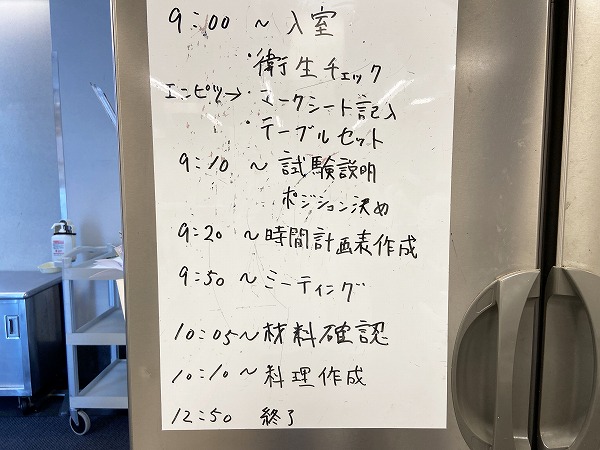 9:00 ~ 入室
・衛生チェック
エンピツ→・マークシート記入
・テーブルセット
9:10 ~ 試験説明
ポジション決め
9:20 ~時間計画表作成
9:50 ~ミーティング
10:05~材料確認
10:10~料理作成
12:50 終了